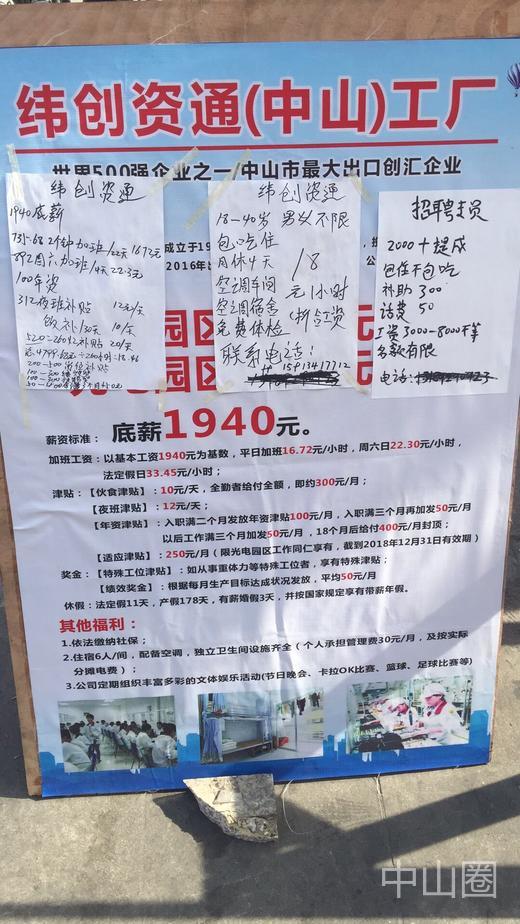 纬创资通(中山)工厂
世界500强企业之一/中山市最大出口创汇企业
纬创资通
1940底薪
100年资
312夜班补贴 12元/天
饭补/30天 10/天
纬创资通
18-40岁 男女不限
包吃住
月休4天
18元1小时
空调车间
空调宿舍
免费体检
联系电话:
15913417712
招聘文员
2000+提成
包住不包吃
补助300
话费50
工资3000-8000不等
名额有限
电话:
成立于19
2016年
园区
元
园区
元
薪资标准: 底薪1940元。
加班工资:以基本工资1940元为基数,平日加班16.72元/小时,周六日22.30元/小时,
法定假日33.45元/小时;
津贴:【伙食津贴】:10元/天,全勤者给付全额,即约300元/月;
【夜班津贴】:12元/天;
【年资津贴】:入职满二个月发放年资津贴100元/月,入职满三个月再加发50元/月
以后工作满三个月加发50元/月,18个月后给付400元/月封顶;
【适应津贴】:250元/月(限光电园区工作同仁享有,截到2018年12月31日有效期)
奖金:【特殊工位津贴】:如从事重体力等特殊工位者,享有特殊津贴;
【绩效奖金】:根据每月生产目标达成状况发放,平均50元/月
休假:法定假11天,产假178天,有薪婚假3天,并按国家规定享有带薪年假。
其他福利:
1.依法缴纳社保;
2.住宿6人/间,配备空调,独立卫生间设施齐全(个人承担管理费30元/月,及按实际
分摊电费);
3.公司定期组织丰富多彩的文体娱乐活动(节目晚会、卡拉OK比赛、篮球、足球比赛等)
中山圈